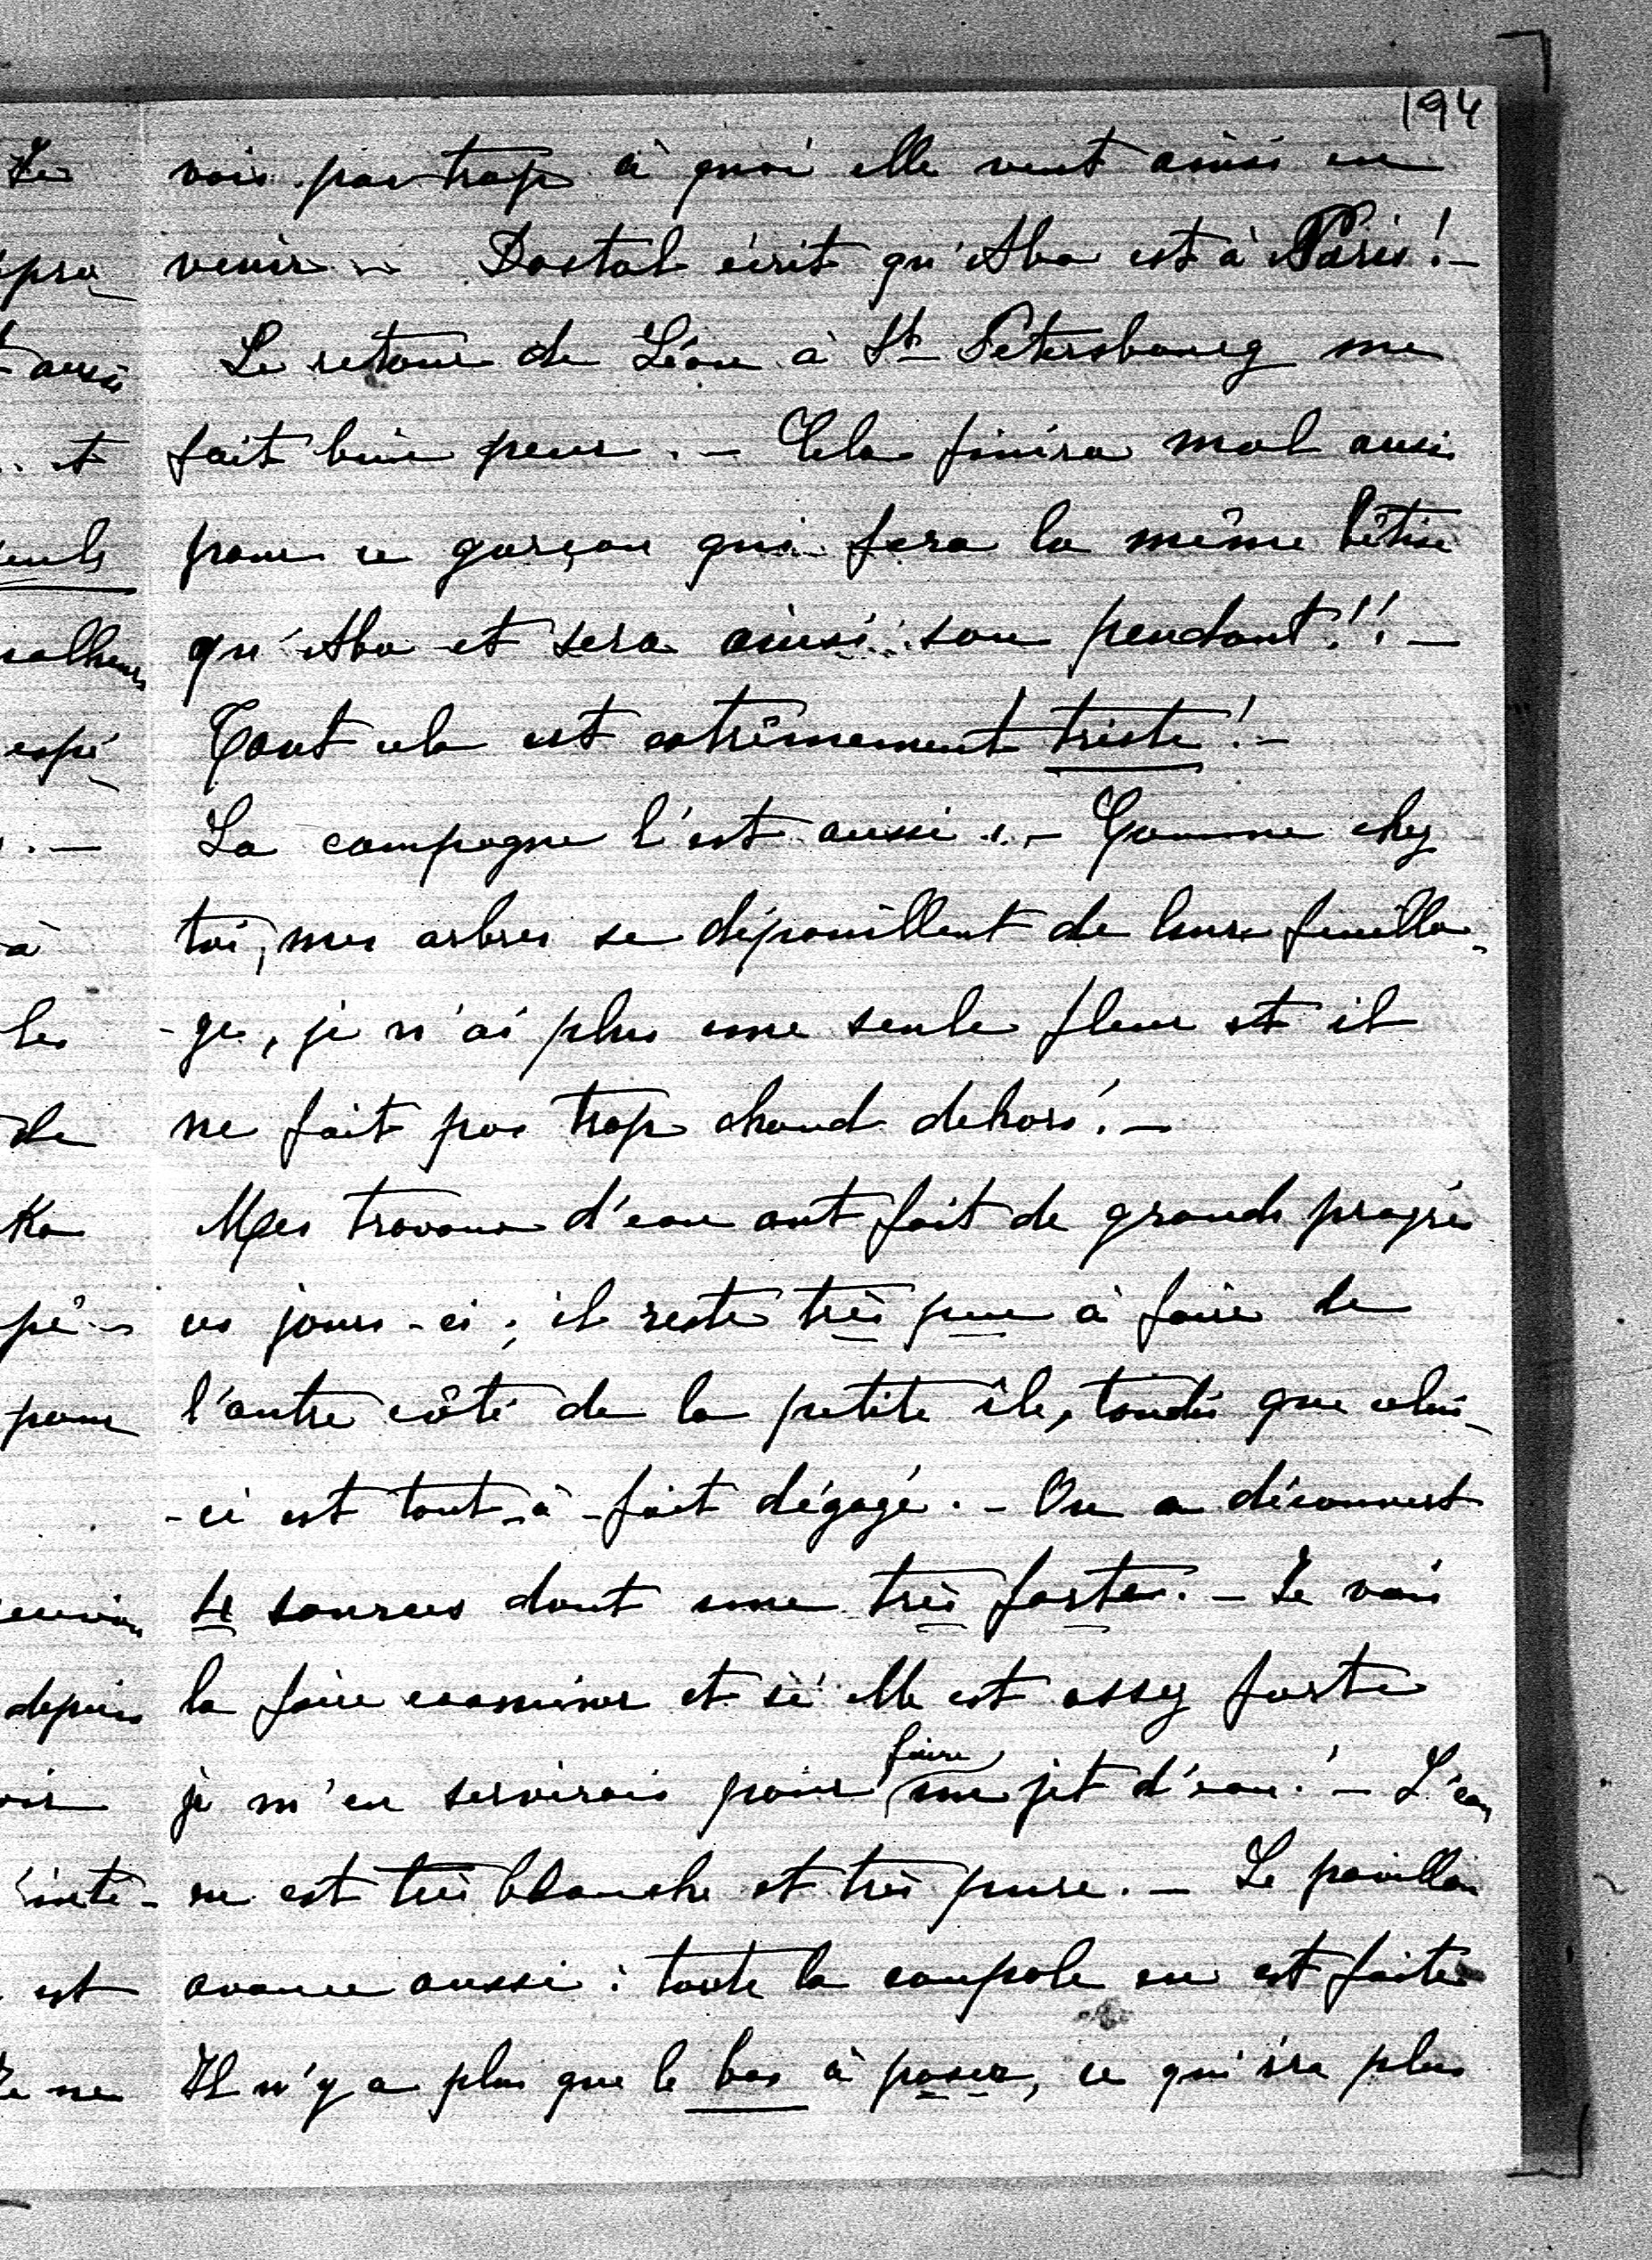 194
vois pas trop à quoi elle veut ainsi en
venir. Dostal écrit qu'Aba est à Paris! -
Le retour de Léon à St Petersbourg me
fait bien peur. - Cela finira mal aussi
pour ce garçon qui fera la même bêtise
qu'Aba et sera ainsi son pendant!! -
Tout cela est extrêmement triste! -
La campagne l'est aussi. - Comme chez
toi, mes arbres se dépouillent de leur feuilla-
-ge, je n'ai plus une seule fleur et il
ne fait pas trop chaud dehors! -
Mes travaux d'eau ont fait de grands progrès
ces jours-ci; il reste très peu à faire de
l'autre côté de la petite île, tandis que celui-
-ci est tout-à-fait dégagé. - On a découvert
sources dont une très forte. - Je vais
la faire examiner et si elle est assez forte
je m'en servirais pour faire un jet d'eau! - L'eau
en est très blanche et très pure. - Le pavillon
avance aussi: toute la coupole en est faite
Il n'y a plus que le bas à poser, ce qui ira plus
Je
aussi
et
seuls
à
les
de
Ka
pé-
pour
depuis
est
Je ne